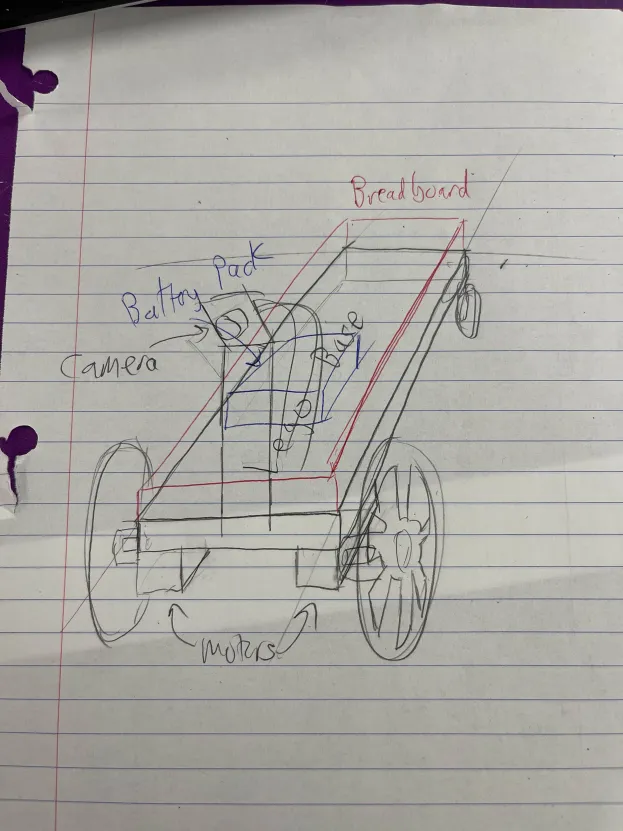 Breadboard
Battery Pack
Camera
Lego Base
motors